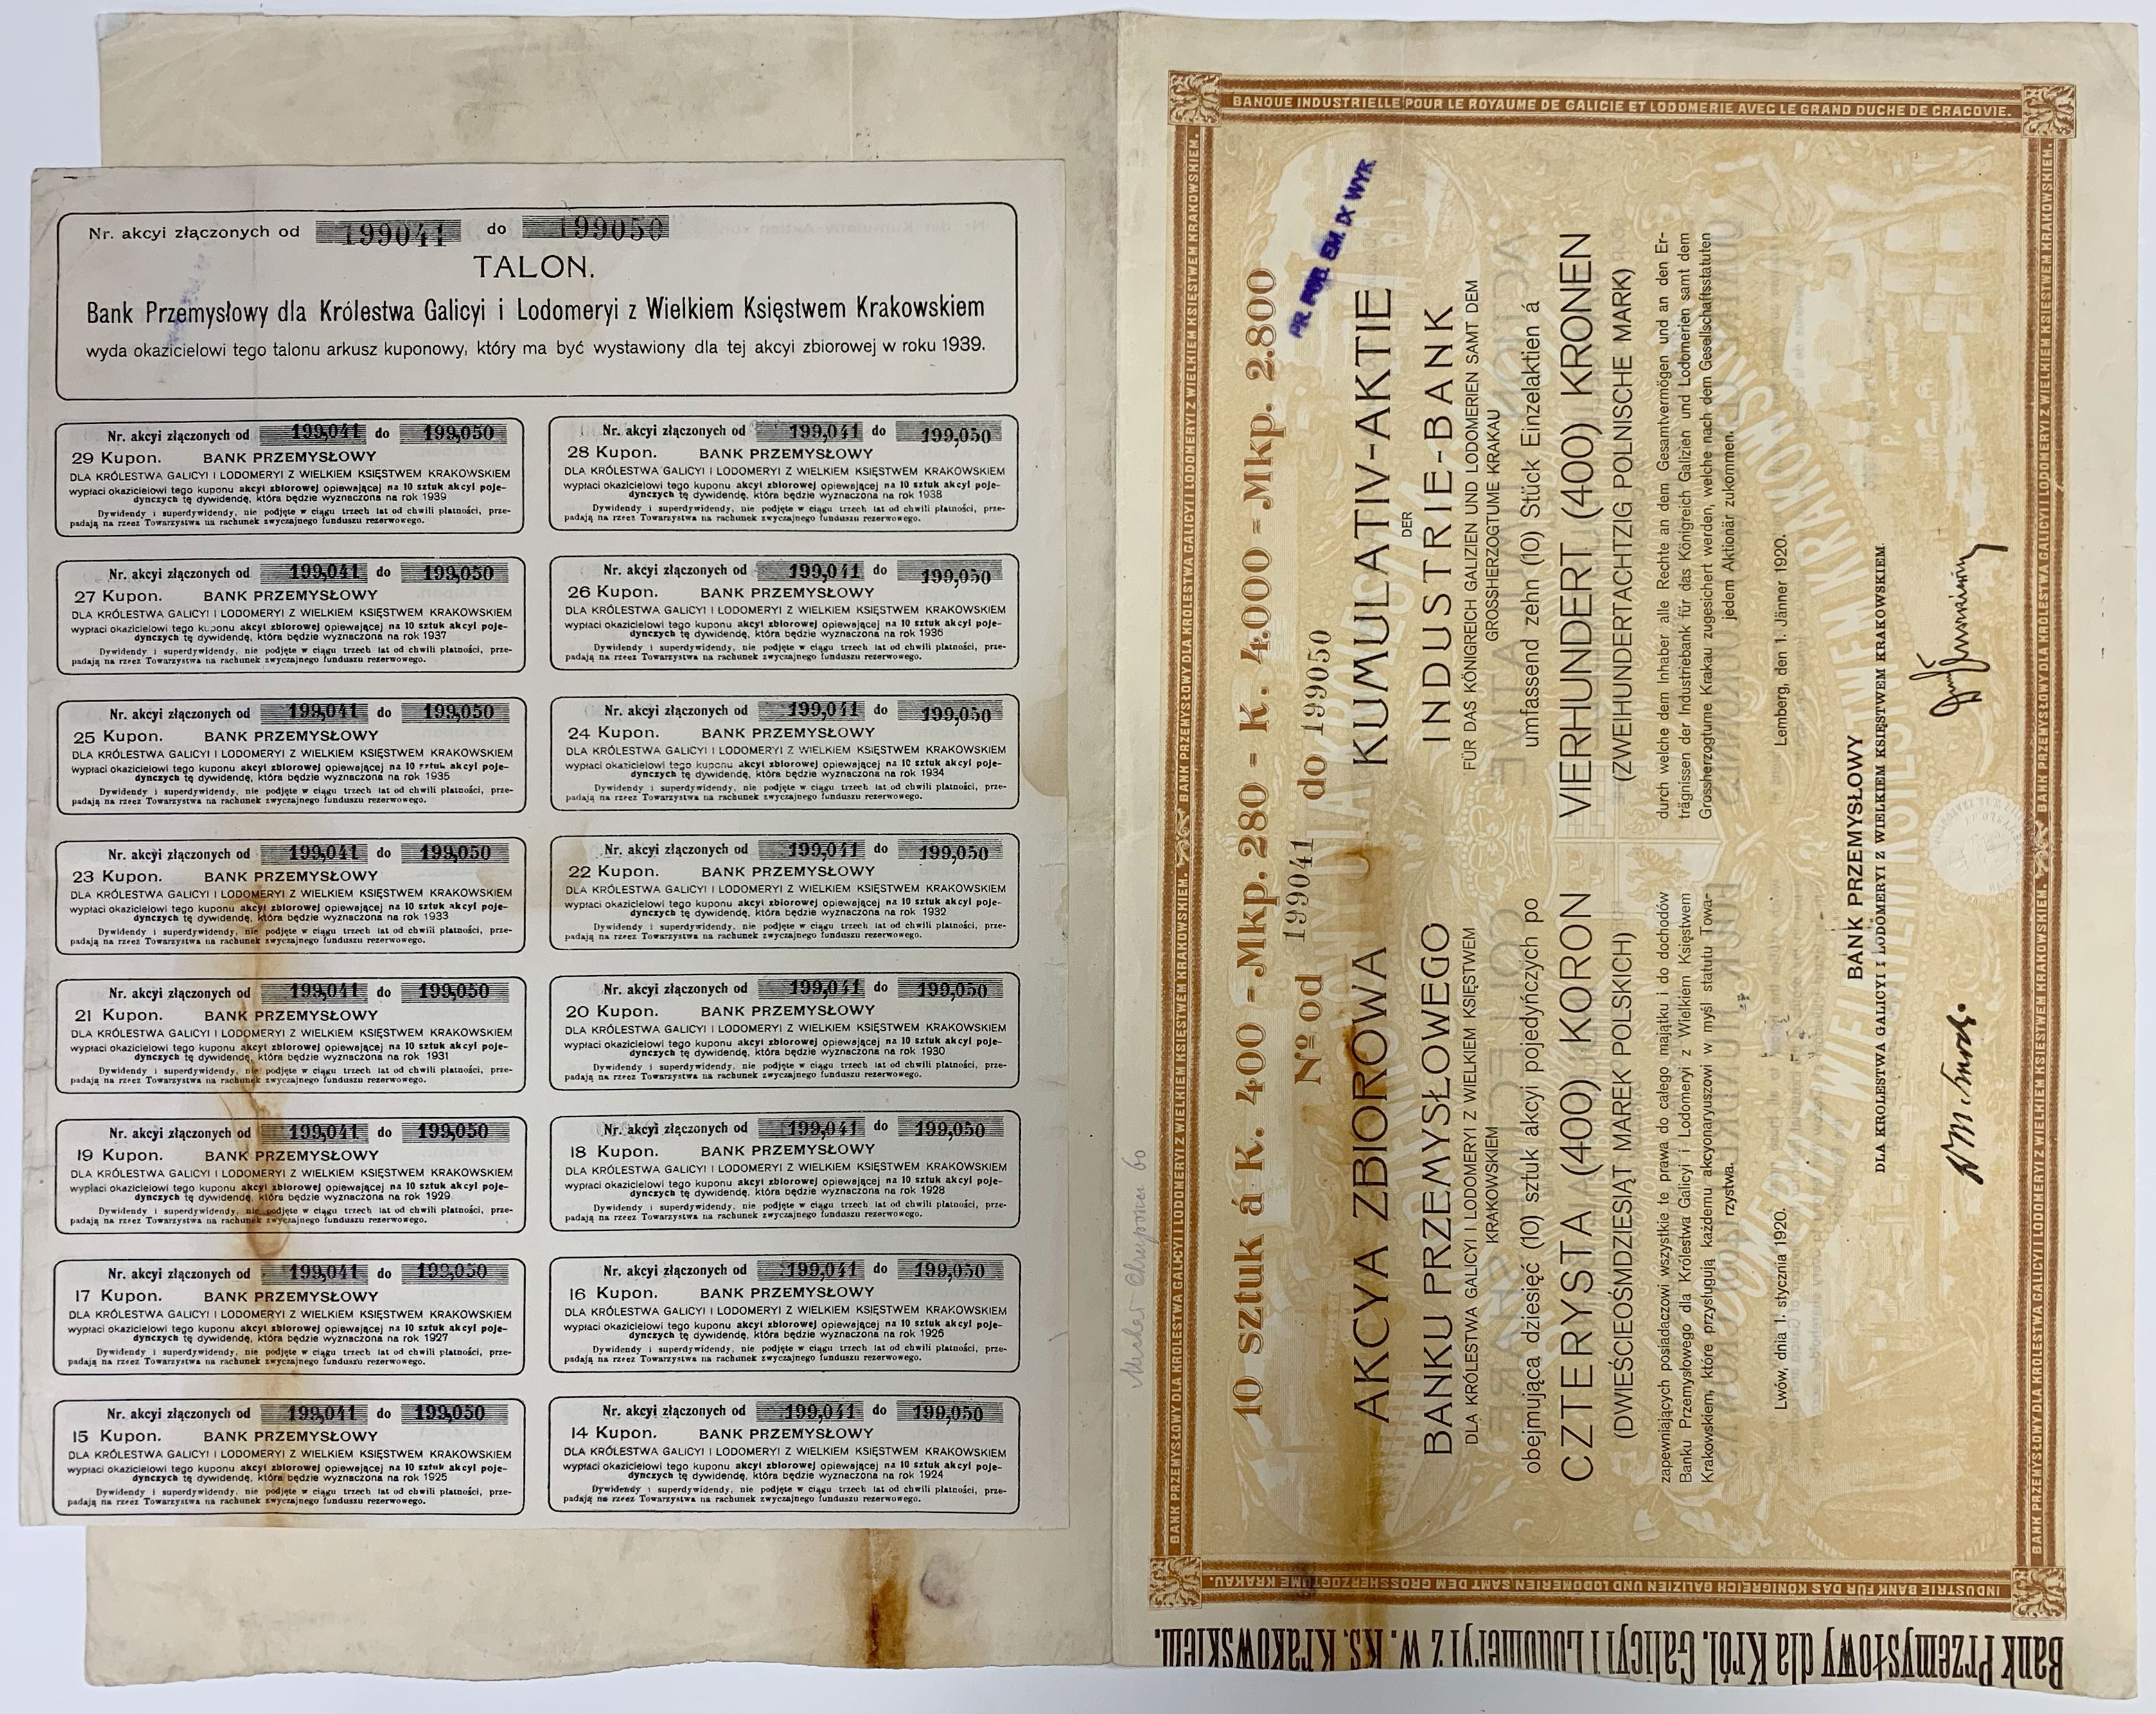 Nr. akcyi złączonych od 199041 do 199050
TALON.
Bank Przemysłowy dla Królestwa Galicyi i Lodomeryi z Wielkiem Księstwem Krakowskiem
wyda okazicielowi tego talonu arkusz kuponowy, który ma być wystawiony dla tej akcyi zbiorowej w roku 1939.
Nr. akcyi złączonych od 199,041 do 199,050
29 Kupon. BANK PRZEMYSŁOWY
DLA KRÓLESTWA GALICYI I LODOMERYI Z WIELKIEM KSIĘSTWEM KRAKOWSKIEM
wypłaci okazicielowi tego kuponu akcyi zbiorowej opiewającej na 10 sztuk akcyi poje-
dynczych tę dywidendę, która będzie wyznaczona na rok 1939
Dywidendy i superdywidendy, nie podjęte w ciągu trzech lat od chwili płatności, prze-
padają na rzecz Towarzystwa na rachunek zwyczajnego funduszu rezerwowego.
Nr. akcyi złączonych od 199,041 do 199,050
28 Kupon. BANK PRZEMYSŁOWY
DLA KRÓLESTWA GALICYI I LODOMERYI Z WIELKIEM KSIĘSTWEM KRAKOWSKIEM
wypłaci okazicielowi tego kuponu akcyi zbiorowej opiewającej na 10 sztuk akcyi poje-
dynczych tę dywidendę, która będzie wyznaczona na rok 1938
Dywidendy i superdywidendy, nie podjęte w ciągu trzech lat od chwili płatności, prze-
padają na rzecz Towarzystwa na rachunek zwyczajnego funduszu rezerwowego.
Nr. akcyi złączonych od 199,041 do 199,050
27 Kupon. BANK PRZEMYSŁOWY
DLA KRÓLESTWA GALICYI I LODOMERYI Z WIELKIEM KSIĘSTWEM KRAKOWSKIEM
wypłaci okazicielowi tego kuponu akcyi zbiorowej opiewającej na 10 sztuk akcyi poje-
dynczych tę dywidendę, która będzie wyznaczona na rok 1937
Dywidendy i superdywidendy, nie podjęte w ciągu trzech lat od chwili płatności, prze-
padają na rzecz Towarzystwa na rachunek zwyczajnego funduszu rezerwowego.
Nr. akcyi złączonych od 199,041 do 199,050
26 Kupon. BANK PRZEMYSŁOWY
DLA KRÓLESTWA GALICYI I LODOMERYI Z WIELKIEM KSIĘSTWEM KRAKOWSKIEM
wypłaci okazicielowi tego kuponu akcyi zbiorowej opiewającej na 10 sztuk akcyi poje-
dynczych tę dywidendę, która będzie wyznaczona na rok 1936
Dywidendy i superdywidendy, nie podjęte w ciągu trzech lat od chwili płatności, prze-
padają na rzecz Towarzystwa na rachunek zwyczajnego funduszu rezerwowego.
Nr. akcyi złączonych od 199,041 do 199,050
25 Kupon. BANK PRZEMYSŁOWY
DLA KRÓLESTWA GALICYI I LODOMERYI Z WIELKIEM KSIĘSTWEM KRAKOWSKIEM
wypłaci okazicielowi tego kuponu akcyi zbiorowej opiewającej na 10 sztuk akcyi poje-
dynczych tę dywidendę, która będzie wyznaczona na rok 1935
Dywidendy i superdywidendy, nie podjęte w ciągu trzech lat od chwili płatności, prze-
padają na rzecz Towarzystwa na rachunek zwyczajnego funduszu rezerwowego.
Nr. akcyi złączonych od 199,041 do 199,050
24 Kupon. BANK PRZEMYSŁOWY
DLA KRÓLESTWA GALICYI I LODOMERYI Z WIELKIEM KSIĘSTWEM KRAKOWSKIEM
wypłaci okazicielowi tego kuponu akcyi zbiorowej opiewającej na 10 sztuk akcyi poje-
dynczych tę dywidendę, która będzie wyznaczona na rok 1934
Dywidendy i superdywidendy, nie podjęte w ciągu trzech lat od chwili płatności, prze-
padają na rzecz Towarzystwa na rachunek zwyczajnego funduszu rezerwowego.
Nr. akcyi złączonych od 199,041 do 199,050
23 Kupon. BANK PRZEMYSŁOWY
DLA KRÓLESTWA GALICYI I LODOMERYI Z WIELKIEM KSIĘSTWEM KRAKOWSKIEM
wypłaci okazicielowi tego kuponu akcyi zbiorowej opiewającej na 10 sztuk akcyi poje-
dynczych tę dywidendę, która będzie wyznaczona na rok 1933
Dywidendy i superdywidendy, nie podjęte w ciągu trzech lat od chwili płatności, prze-
padają na rzecz Towarzystwa na rachunek zwyczajnego funduszu rezerwowego.
Nr. akcyi złączonych od 199,041 do 199,050
22 Kupon. BANK PRZEMYSŁOWY
DLA KRÓLESTWA GALICYI I LODOMERYI Z WIELKIEM KSIĘSTWEM KRAKOWSKIEM
wypłaci okazicielowi tego kuponu akcyi zbiorowej opiewającej na 10 sztuk akcyi poje-
dynczych tę dywidendę, która będzie wyznaczona na rok 1932
Dywidendy i superdywidendy, nie podjęte w ciągu trzech lat od chwili płatności, prze-
padają na rzecz Towarzystwa na rachunek zwyczajnego funduszu rezerwowego.
Nr. akcyi złączonych od 199,041 do 199,050
21 Kupon. BANK PRZEMYSŁOWY
DLA KRÓLESTWA GALICYI I LODOMERYI Z WIELKIEM KSIĘSTWEM KRAKOWSKIEM
wypłaci okazicielowi tego kuponu akcyi zbiorowej opiewającej na 10 sztuk akcyi poje-
dynczych tę dywidendę, która będzie wyznaczona na rok 1931
Dywidendy i superdywidendy, nie podjęte w ciągu trzech lat od chwili płatności, prze-
padają na rzecz Towarzystwa na rachunek zwyczajnego funduszu rezerwowego.
Nr. akcyi złączonych od 199,041 do 199,050
20 Kupon. BANK PRZEMYSŁOWY
DLA KRÓLESTWA GALICYI I LODOMERYI Z WIELKIEM KSIĘSTWEM KRAKOWSKIEM
wypłaci okazicielowi tego kuponu akcyi zbiorowej opiewającej na 10 sztuk akcyi poje-
dynczych tę dywidendę, która będzie wyznaczona na rok 1930
Dywidendy i superdywidendy, nie podjęte w ciągu trzech lat od chwili płatności, prze-
padają na rzecz Towarzystwa na rachunek zwyczajnego funduszu rezerwowego.
Nr. akcyi złączonych od 199,041 do 199,050
19 Kupon. BANK PRZEMYSŁOWY
DLA KRÓLESTWA GALICYI I LODOMERYI Z WIELKIEM KSIĘSTWEM KRAKOWSKIEM
wypłaci okazicielowi tego kuponu akcyi zbiorowej opiewającej na 10 sztuk akcyi poje-
dynczych tę dywidendę, która będzie wyznaczona na rok 1929
Dywidendy i superdywidendy, nie podjęte w ciągu trzech lat od chwili płatności, prze-
padają na rzecz Towarzystwa na rachunek zwyczajnego funduszu rezerwowego.
Nr. akcyi złączonych od 199,041 do 199,050
18 Kupon. BANK PRZEMYSŁOWY
DLA KRÓLESTWA GALICYI I LODOMERYI Z WIELKIEM KSIĘSTWEM KRAKOWSKIEM
wypłaci okazicielowi tego kuponu akcyi zbiorowej opiewającej na 10 sztuk akcyi poje-
dynczych tę dywidendę, która będzie wyznaczona na rok 1928
Dywidendy i superdywidendy, nie podjęte w ciągu trzech lat od chwili płatności, prze-
padają na rzecz Towarzystwa na rachunek zwyczajnego funduszu rezerwowego.
Nr. akcyi złączonych od 199,041 do 199,050
17 Kupon. BANK PRZEMYSŁOWY
DLA KRÓLESTWA GALICYI I LODOMERYI Z WIELKIEM KSIĘSTWEM KRAKOWSKIEM
wypłaci okazicielowi tego kuponu akcyi zbiorowej opiewającej na 10 sztuk akcyi poje-
dynczych tę dywidendę, która będzie wyznaczona na rok 1927
Dywidendy i superdywidendy, nie podjęte w ciągu trzech lat od chwili płatności, prze-
padają na rzecz Towarzystwa na rachunek zwyczajnego funduszu rezerwowego.
Nr. akcyi złączonych od 199,041 do 199,050
16 Kupon. BANK PRZEMYSŁOWY
DLA KRÓLESTWA GALICYI I LODOMERYI Z WIELKIEM KSIĘSTWEM KRAKOWSKIEM
wypłaci okazicielowi tego kuponu akcyi zbiorowej opiewającej na 10 sztuk akcyi poje-
dynczych tę dywidendę, która będzie wyznaczona na rok 1926
Dywidendy i superdywidendy, nie podjęte w ciągu trzech lat od chwili płatności, prze-
padają na rzecz Towarzystwa na rachunek zwyczajnego funduszu rezerwowego.
Nr. akcyi złączonych od 199,041 do 199,050
15 Kupon. BANK PRZEMYSŁOWY
DLA KRÓLESTWA GALICYI I LODOMERYI Z WIELKIEM KSIĘSTWEM KRAKOWSKIEM
wypłaci okazicielowi tego kuponu akcyi zbiorowej opiewającej na 10 sztuk akcyi poje-
dynczych tę dywidendę, która będzie wyznaczona na rok 1925
Dywidendy i superdywidendy, nie podjęte w ciągu trzech lat od chwili płatności, prze-
padają na rzecz Towarzystwa na rachunek zwyczajnego funduszu rezerwowego.
Nr. akcyi złączonych od 199,041 do 199,050
14 Kupon. BANK PRZEMYSŁOWY
DLA KRÓLESTWA GALICYI I LODOMERYI Z WIELKIEM KSIĘSTWEM KRAKOWSKIEM
wypłaci okazicielowi tego kuponu akcyi zbiorowej opiewającej na 10 sztuk akcyi poje-
dynczych tę dywidendę, która będzie wyznaczona na rok 1924
Dywidendy i superdywidendy, nie podjęte w ciągu trzech lat od chwili płatności, prze-
padają na rzecz Towarzystwa na rachunek zwyczajnego funduszu rezerwowego.
BANK PRZEMYSŁOWY DLA KRÓLESTWA GALICYI I LODOMERYI Z WIELKIEM KSIĘSTWEM KRAKOWSKIEM. BANK PRZEMYSŁOWY DLA KRÓLESTWA GALICYI I LODOMERYI Z WIELKIEM KSIĘSTWEM KRAKOWSKIEM.
BANQUE INDUSTRIELLE POUR LE ROYAUME DE GALICIE ET LODOMERIE AVEC LE GRAND DUCHE DE CRACOVIE.
10 sztuk á K. 400 - Mkp. 280 - K. 4.000 - Mkp. 2.800
PR. POB. EM. IX WYK
Nº od 199041 do 199050
AKCYA ZBIOROWA
BANKU PRZEMYSŁOWEGO
DLA KRÓLESTWA GALICYI I LODOMERYI Z WIELKIEM KSIĘSTWEM
KRAKOWSKIEM
obejmująca dziesięć (10) sztuk akcyi pojedyńczych po
CZTERYSTA (400) KORON
(DWIEŚCIEOŚMDZIESIĄT MAREK POLSKICH)
zapewniających posiadaczowi wszystkie te prawa do całego majątku i do dochodów
Banku Przemysłowego dla Królestwa Galicyi i Lodomeryi z Wielkiem Księstwem
Krakowskiem, które przysługują każdemu akcyonaryuszowi w myśl statutu Towa-
rzystwa.
Lwów, dnia 1. stycznia 1920.
KUMULATIV-AKTIE
DER
INDUSTRIE-BANK
FÜR DAS KÖNIGREICH GALIZIEN UND LODOMERIEN SAMT DEM
GROSSHERZOGTUME KRAKAU
umfassend zehn (10) Stück Einzelaktien á
VIERHUNDERT (400) KRONEN
(ZWEIHUNDERTACHTZIG POLNISCHE MARK)
durch welche dem Inhaber alle Rechte an dem Gesamtvermögen und an den Er-
trägnissen der Industriebank für das Königreich Galizien und Lodomerien samt dem
Grossherzogtume Krakau zugesichert werden, welche nach dem Gesellschaftsstatuten
jedem Aktionär zukommen.
Lemberg, den 1. Jänner 1920.
BANK PRZEMYSŁOWY
DLA KRÓLESTWA GALICYI I LODOMERYI Z WIELKIEM KSIĘSTWEM KRAKOWSKIEM.
BANK PRZEMYSŁOWY DLA KRÓLESTWA GALICYI I LODOMERYI Z WIELKIEM KSIĘSTWEM KRAKOWSKIEM. BANK PRZEMYSŁOWY DLA KRÓLESTWA GALICYI I LODOMERYI Z WIELKIEM KSIĘSTWEM KRAKOWSKIEM.
INDUSTRIE BANK FÜR DAS KÖNIGREICH GALIZIEN UND LODOMERIEN SAMT DEM GROSSHERZOGTUME KRAKAU.
Bank Przemysłowy dla Król. Galicyi i Lodomeryi z W. Ks. Krakowskiem.